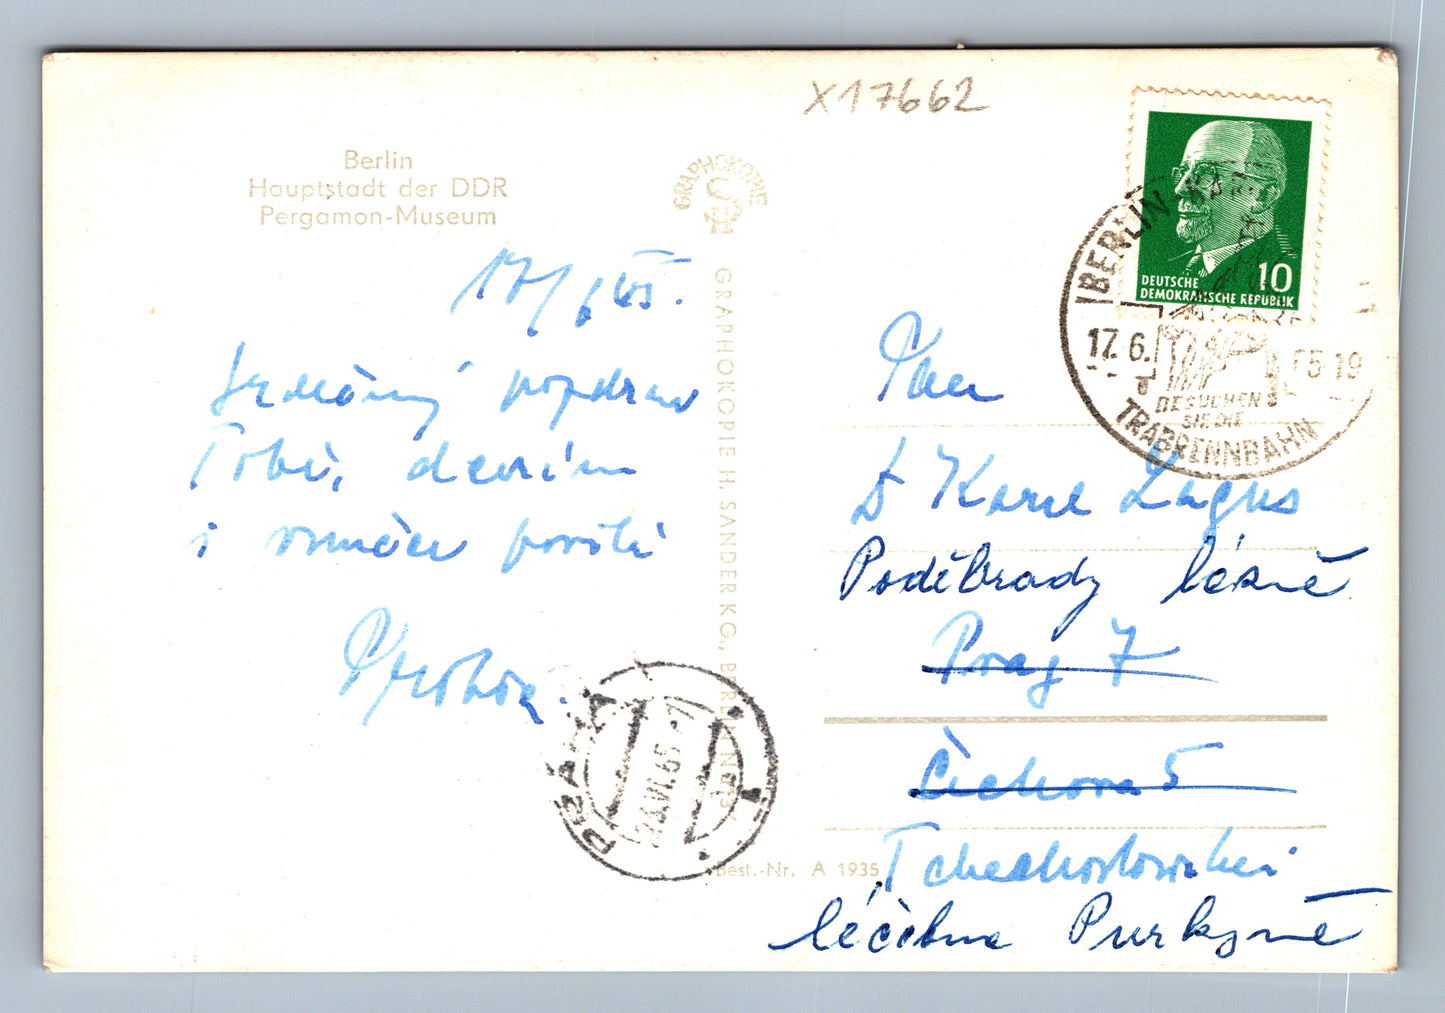 X17662
Berlin
Hauptstadt der DDR
Pergamon-Museum
GRAPHOKOPIE
GRAPHOKOPIE H. SANDER KG., BERLIN
DEUTSCHE
DEMOKRATISCHE REPUBLIK
10
BERLIN-KARL
17.6. 65-19
BESUCHEN
SIE DIE
TRABRENNBAHN
17/6 65.
Srdečný pozdrav
Tobě, dcerám
i vnučce posílá
Herrn
Dr Karel Lagus
Poděbrady lázně
Prag 7
Čechova 5
Tschechoslowakei
léčebna Purkyně
PRAHA
VI.65-7
Best.-Nr. A 1935